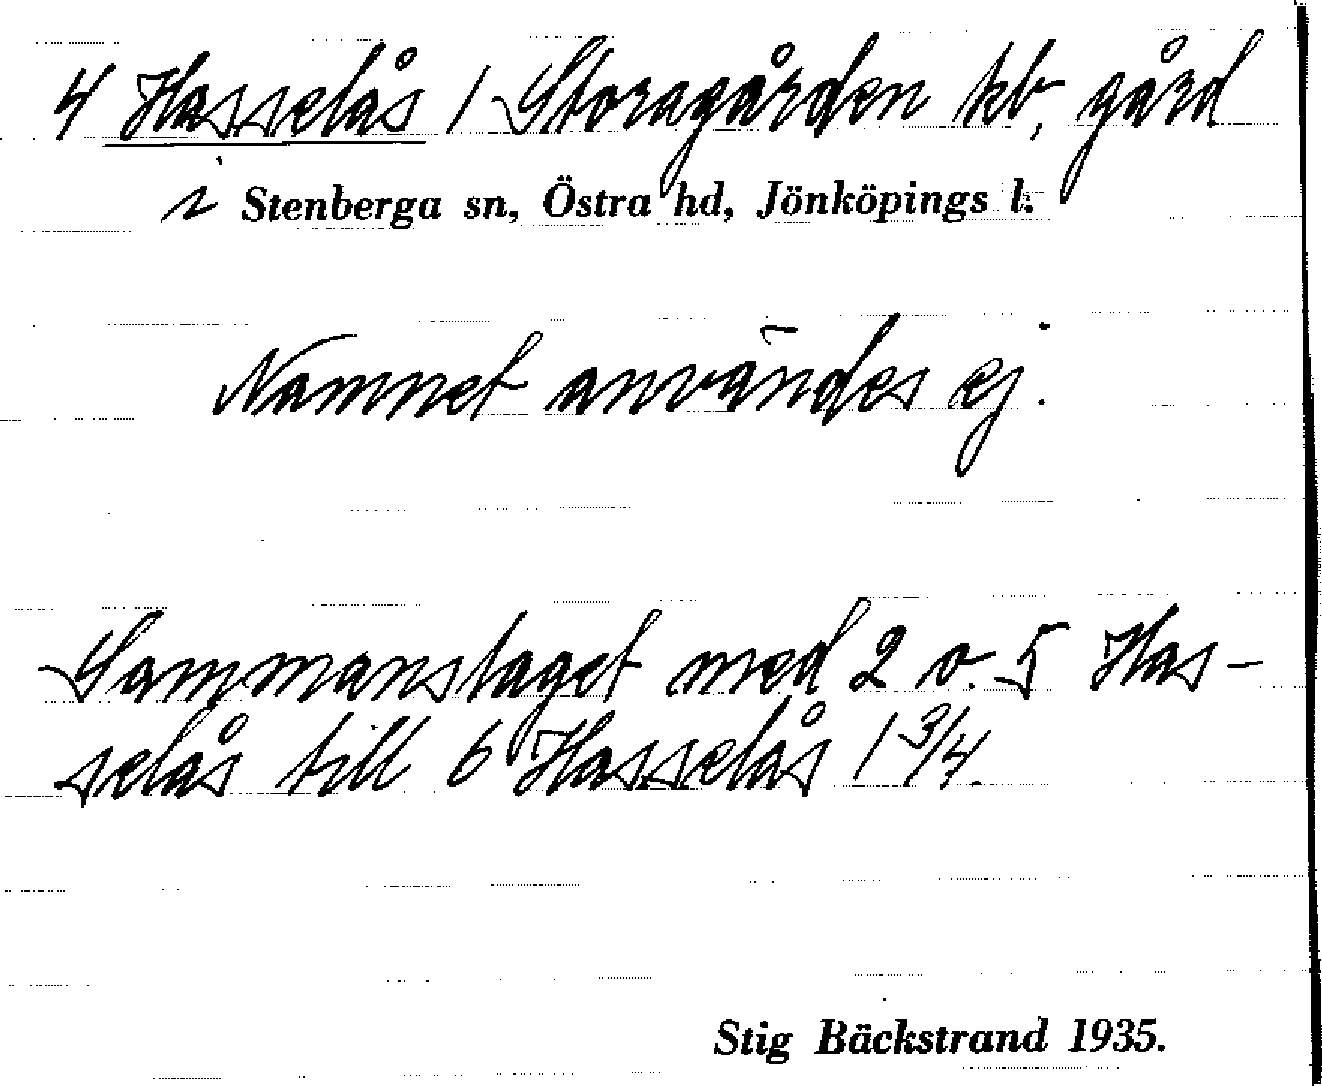 4 Hasselås 1 Storagården kb, gård
i Stenberga sn, Östra hd, Jönköpings l.
Namnet användes ej.
Sammanslaget med 2 o. 5 Has-
selås till 6 Hasselås 1 3/4.
Stig Bäckstrand 1935.